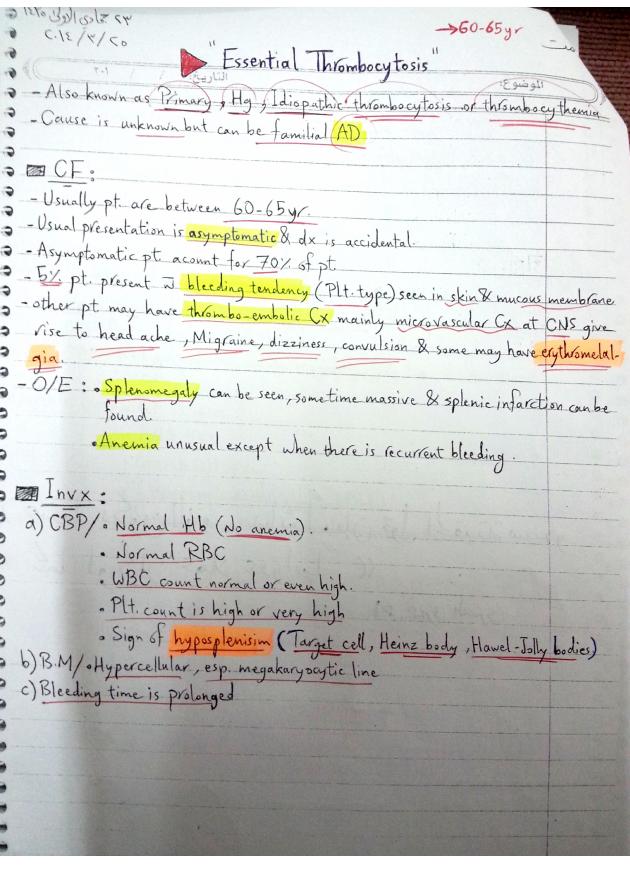 ٢٣ جمادى الاولى ١٤٣٥
٢٠١٤/٣/٢٠
→60-65yr
"Essential Thrombocytosis"
التاريخ:
الموضوع:
- Also known as Primary, Hg, Idiopathic thrombocytosis or thrombocythemia
- Cause is unknown but can be familial AD
CF:
- Usually pt. are between 60-65yr.
- Usual presentation is asymptomatic & dx is accidental.
- Asymptomatic pt. acount for 70% of pt.
- 5% pt. present w̄ bleeding tendency (Plt. type) seen in skin & mucous membrane
- other pt may have thrombo-embolic Cx mainly microvascular Cx at CNS give
rise to head ache, Migraine, dizziness, convulsion & some may have erythromelal-
gia.
- O/E: • Splenomegaly can be seen, sometime massive & splenic infarction can be
found.
• Anemia unusual except when there is recurrent bleeding.
Invx:
a) CBP/ • Normal Hb (No anemia).
• Normal RBC
• WBC count normal or even high.
• Plt. count is high or very high
• Sign of hyposplenisim (Target cell, Heinz body, Hawel-Jolly bodies)
b) B.M/ • Hypercellular, esp. megakaryocytic line
c) Bleeding time is prolonged